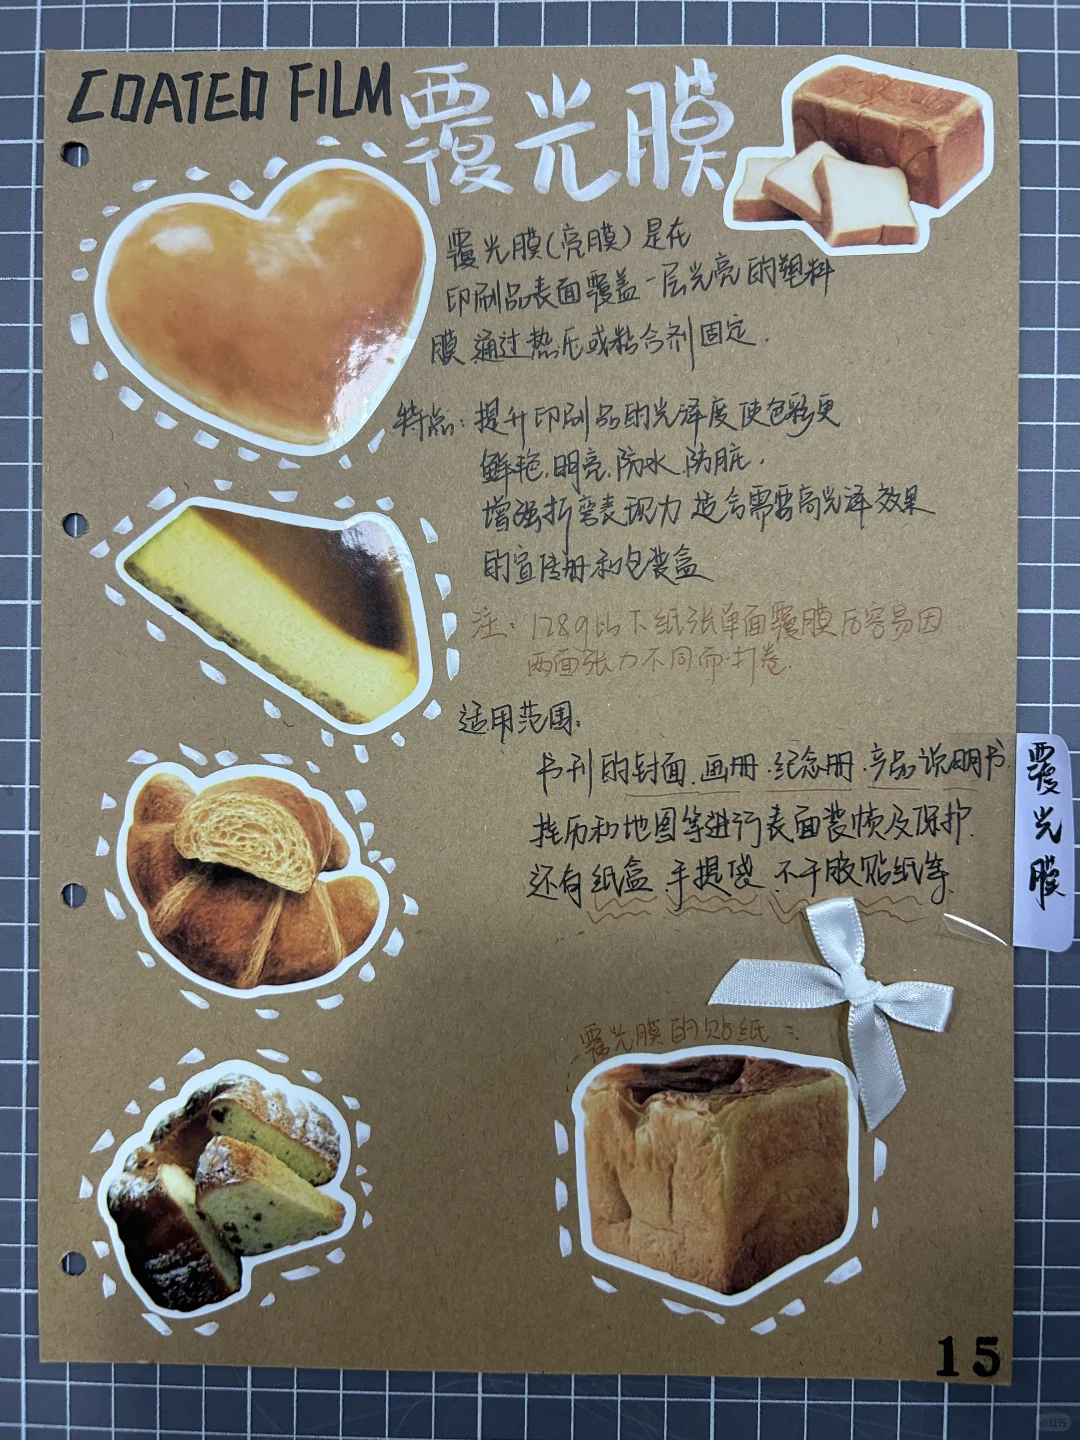 COATED FILM 覆光膜
覆光膜(亮膜)是在
印刷品表面覆盖一层光亮的塑料
膜 通过热压或粘合剂固定.
特点: 提升印刷品的光泽度 使色彩更
鲜艳.明亮.防水.防脏.
增强折弯表现力 适合需要高光泽效果
的宣传册和包装盒
注: 128g以下纸张单面覆膜后容易因
两面张力不同而打卷.
适用范围:
书刊的封面.画册.纪念册.产品说明书.
挂历和地图等进行表面装帧及保护.
还有纸盒 手提袋 不干胶贴纸等.
覆光膜
覆光膜的贴纸
15
小红书